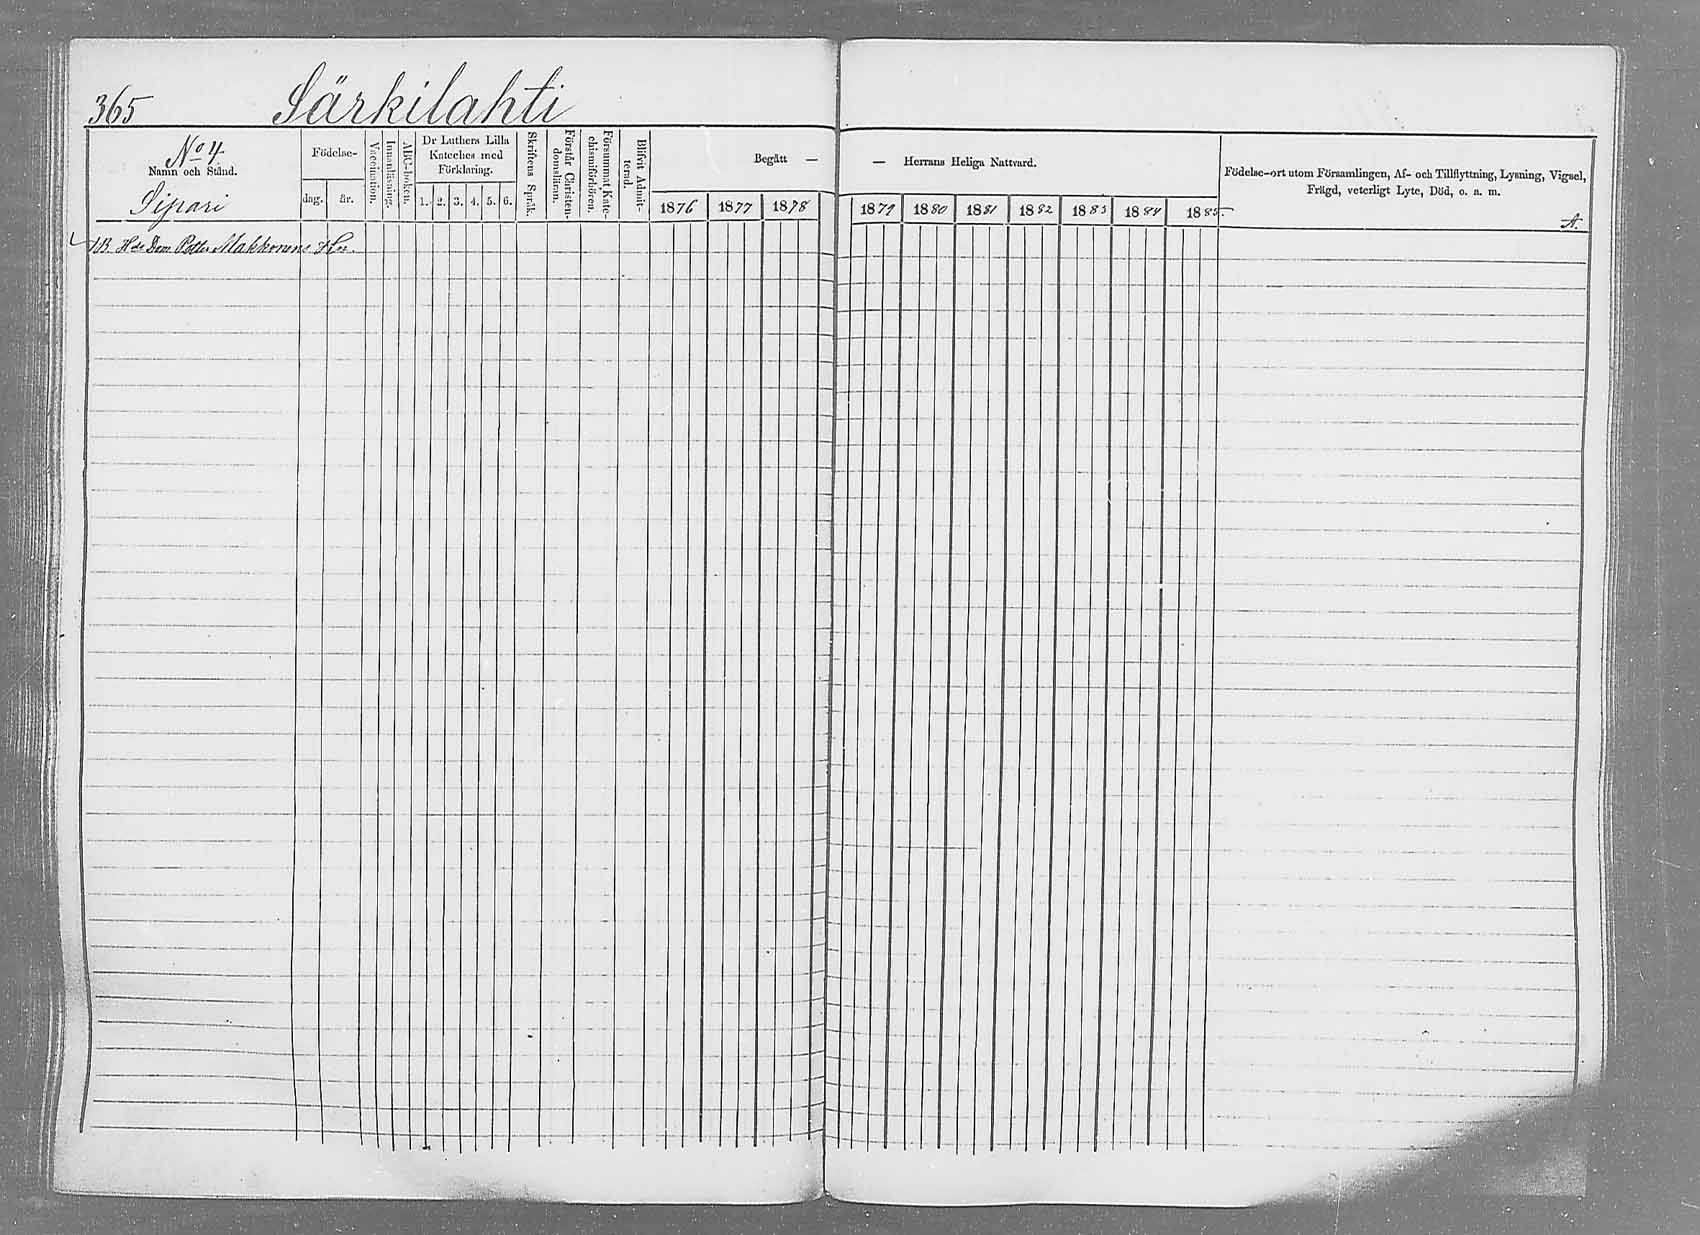 365 Särkilahti
No 4.
Namn och Stånd.
Sipari
Födelse-
dag. år.
Vaccination.
Innanläsning.
ABC-boken.
Dr Luthers Lilla
Kateches med
Förklaring.
1. 2. 3. 4. 5. 6.
Skriftens Språk.
Förstår Christen-
domsläran.
Försummat Kate-
chismiförhören.
Blifvit Admit-
terad.
Begått —
1876 1877 1878
— Herrans Heliga Nattvard.
1879 1880 1881 1882 1883 1884 1885
Födelse-ort utom Församlingen, Af- och Tillflyttning, Lysning, Vigsel,
Frägd, veterligt Lyte, Död, o. a. m.
Petter Makkonens